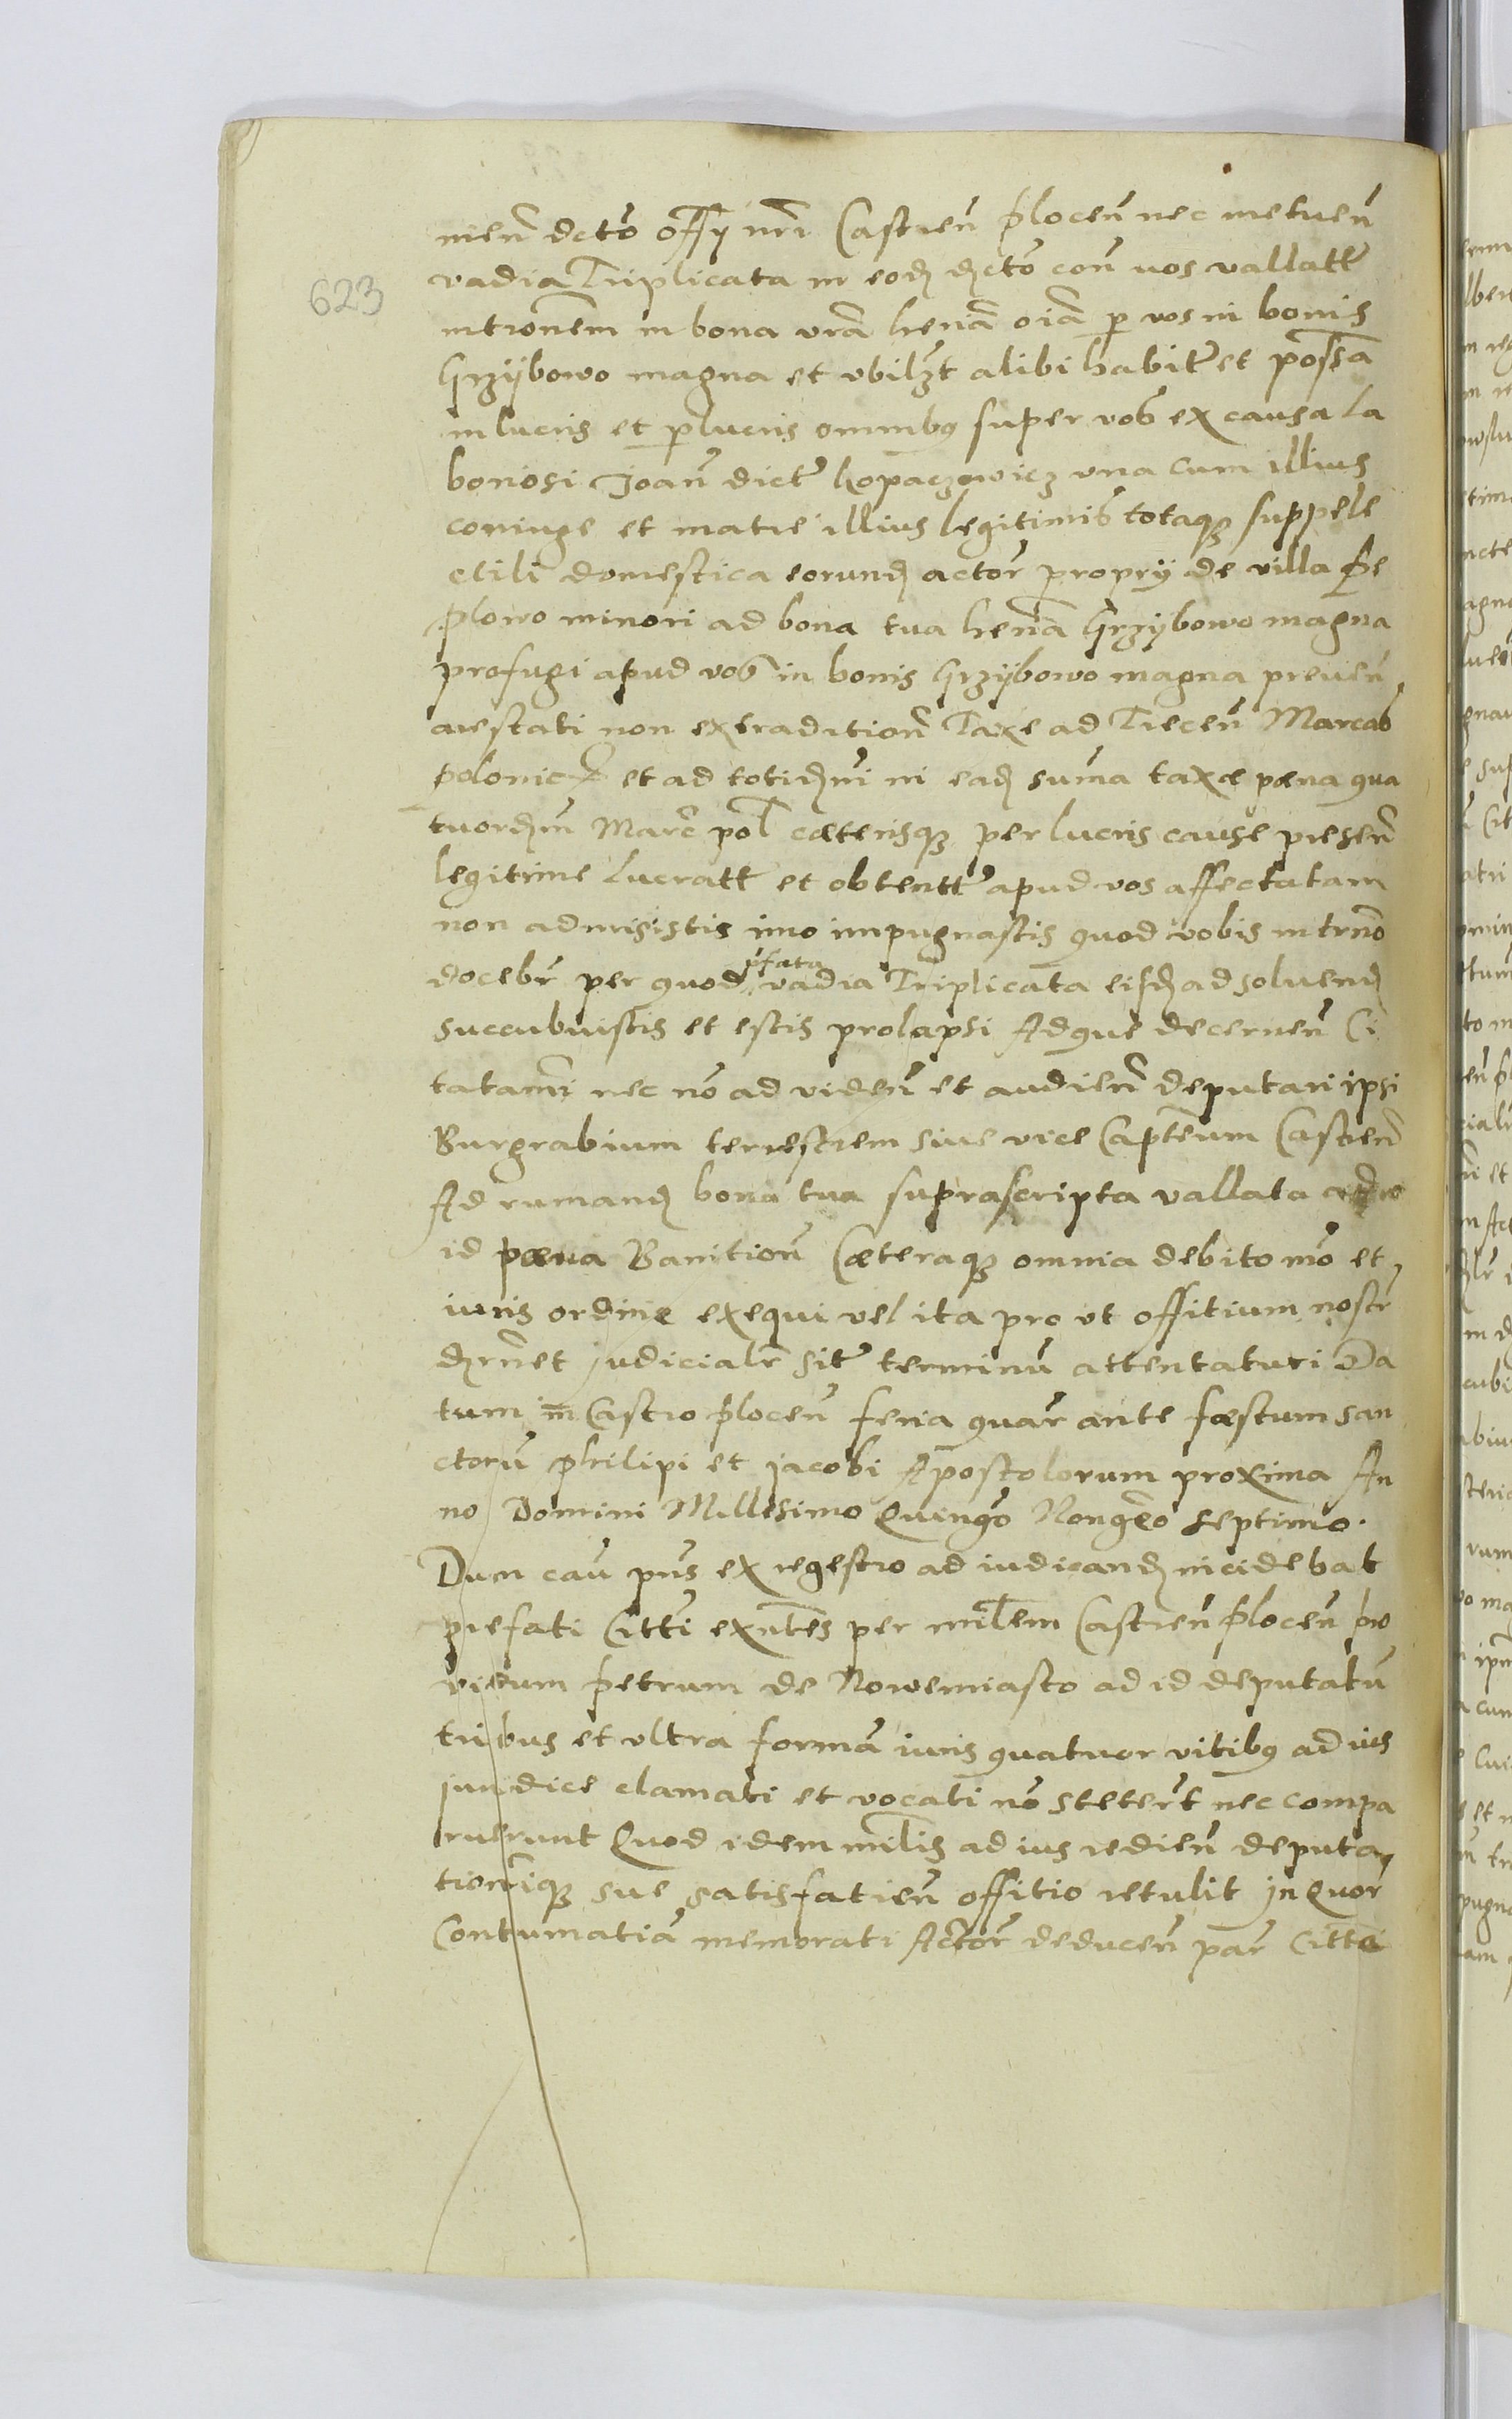 nien dcto offy nri Castren plocen nec metuen
623
vadia Triplicata in eod dcto con vos vallatt
intronem in bona vra heria oia p vos in bonis
Grzÿbowo magna et vbilzt alibi habit et possa
in lucris et plucris omnibq super vos ex causa la
boriosi Joan dict Kopaczowicz vna cum illius
coniuge et matre illius legitimis totaqz suppele
ctili domestica eorund actor propry de villa
plowo minori ad bona tua heria Grzÿbowo magna
profugi apud vos in bonis Grzÿbowo magna preuen
arestati non extradition Taxe ad Trecen Marcas
polonic et ad totidni in ead suma taxæ pæna qua
tuordm Marc pol cæterisqz per lucris cause presen
legitime Lucratt et obtentt apud vos affectatam
non admisistis imo impugnastis quod vobis in trno
docebr per quod pfata vadia Triplicata eisd ad soluend
succubuistis et estis prolapsi Adque decernen Ci
tatami nec no ad viden et audien deputari ipsi
Burgrabium terrestrem siue vice Capteum Castren
Ad rumand bona tua suprascripta vallata
id pæna Banition Cæteraqz omnia debito mo et
iuris ordine exequi vel ita pro vt offitium nostr
drnet judicialr sit terminu attentaturi Da
tum in Castro plocen feria quar ante fæstum san
ctoru philipi et jacobi Apostolorum proxima An
no Domini Millesimo Quingo Nongeo septimo.
Dum cau pns ex regestro ad iudicand incidebat
prefati Citti exntes per milem Castren plocen pro
vidum petrum de Nowemiasto ad id deputatu
tribus et vltra forma iuris quatuor vitibq ad ius
iuridice clamati et vocati no stetert nec compa
ruerunt Quod idem milis ad ius redien deputa
tioniqz sue satisfatien offitio retulit in Quor
Contumatia memorati Actor deducen par Citta